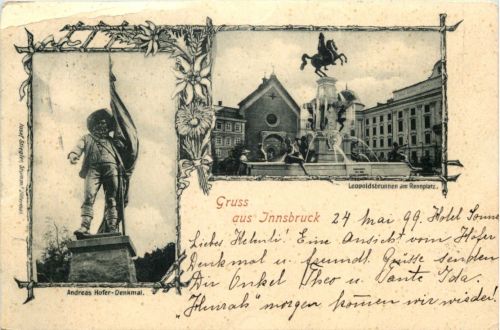 Leopoldsbrunnen am Rennplatz.
Andreas Hofer-Denkmal.
Gruss
aus Innsbruck
24 Mai 99 Hotel Sonne
Liebes Helenli! Eine Ansicht vom Hofer
Denkmal u. freundl. Grüsse senden
Dir Onkel Theo u. Tante Ida.
"Hurrah" morgen kommen wir wieder!